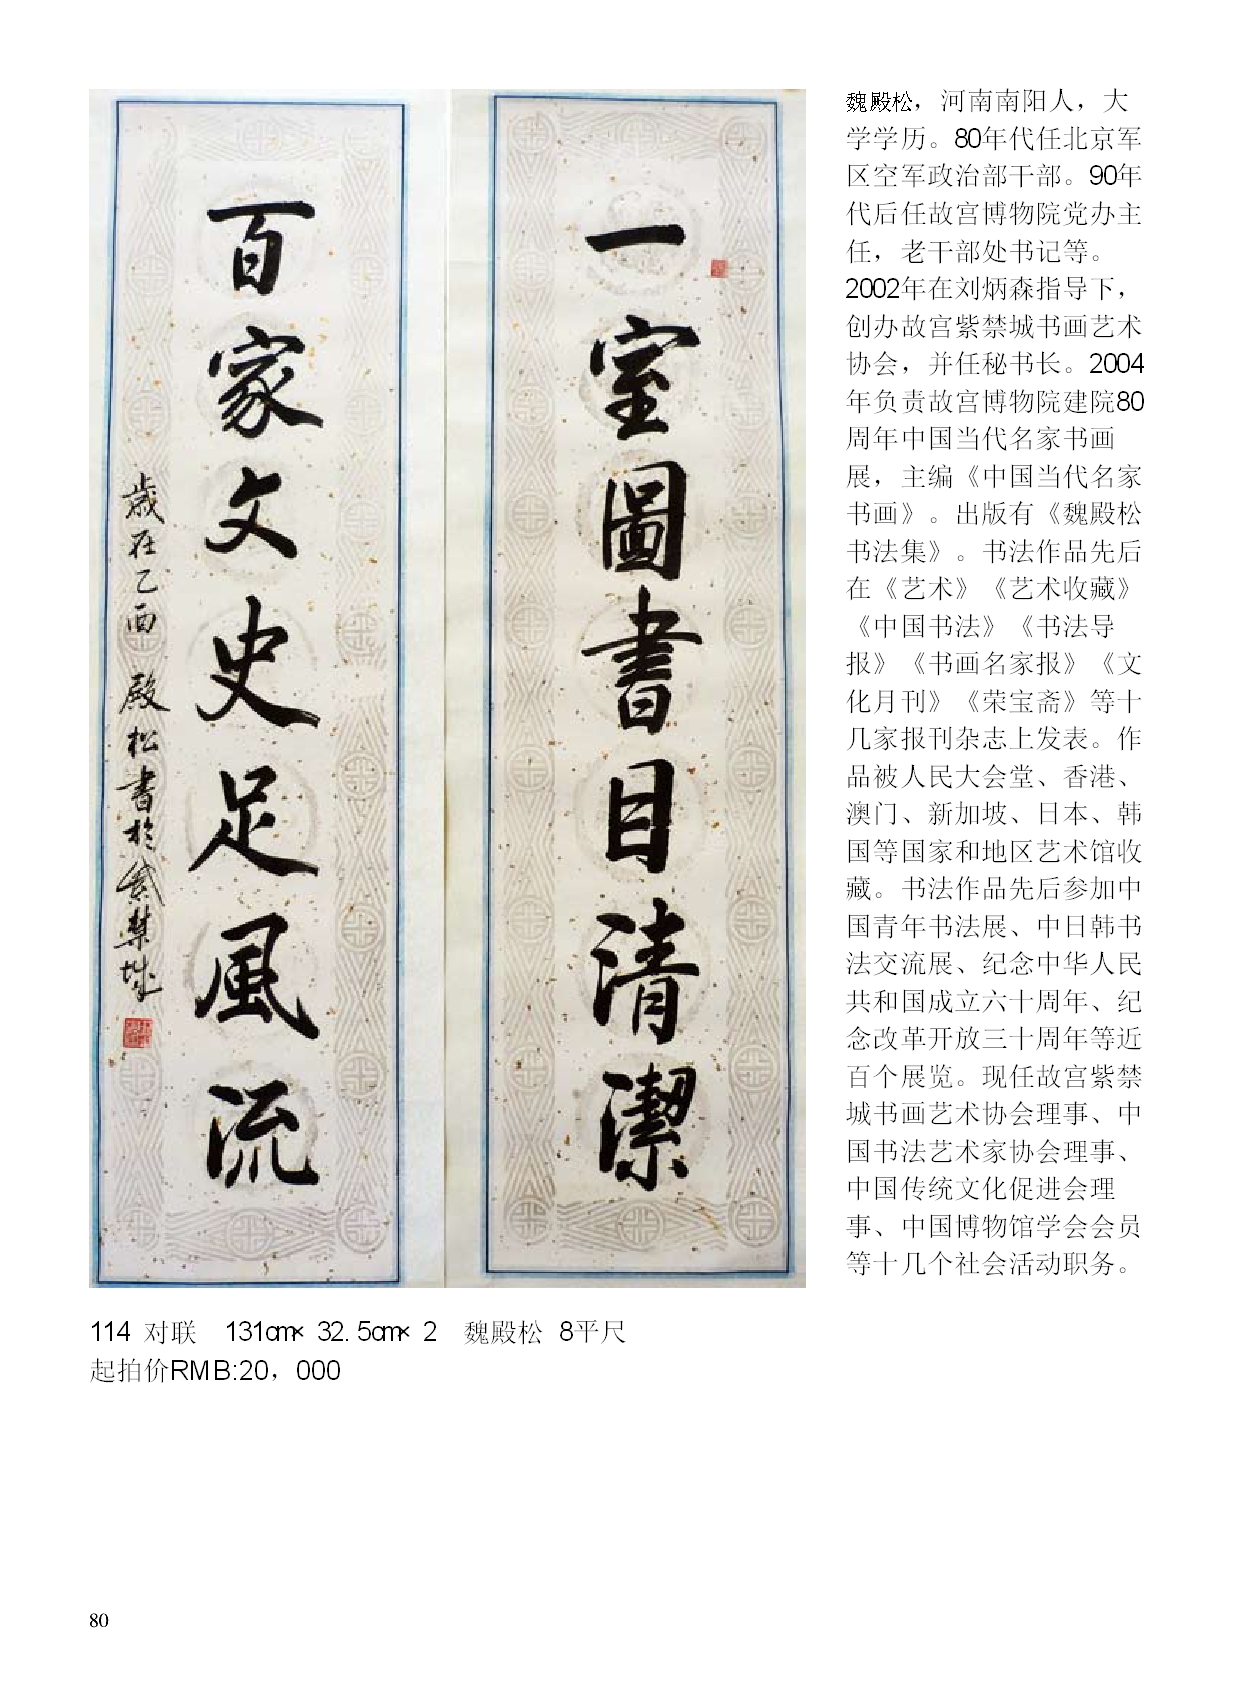 一室圖書目清潔
百家文史足風流
歲在乙酉 殿松書於紫禁城
魏殿松，河南南阳人，大
学学历。80年代任北京军
区空军政治部干部。90年
代后任故宫博物院党办主
任，老干部处书记等。
2002年在刘炳森指导下，
创办故宫紫禁城书画艺术
协会，并任秘书长。2004
年负责故宫博物院建院80
周年中国当代名家书画
展，主编《中国当代名家
书画》。出版有《魏殿松
书法集》。书法作品先后
在《艺术》《艺术收藏》
《中国书法》《书法导
报》《书画名家报》《文
化月刊》《荣宝斋》等十
几家报刊杂志上发表。作
品被人民大会堂、香港、
澳门、新加坡、日本、韩
国等国家和地区艺术馆收
藏。书法作品先后参加中
国青年书法展、中日韩书
法交流展、纪念中华人民
共和国成立六十周年、纪
念改革开放三十周年等近
百个展览。现任故宫紫禁
城书画艺术协会理事、中
国书法艺术家协会理事、
中国传统文化促进会理
事、中国博物馆学会会员
等十几个社会活动职务。
114 对联 131cm× 32.5cm× 2 魏殿松 8平尺
起拍价RMB:20，000
80